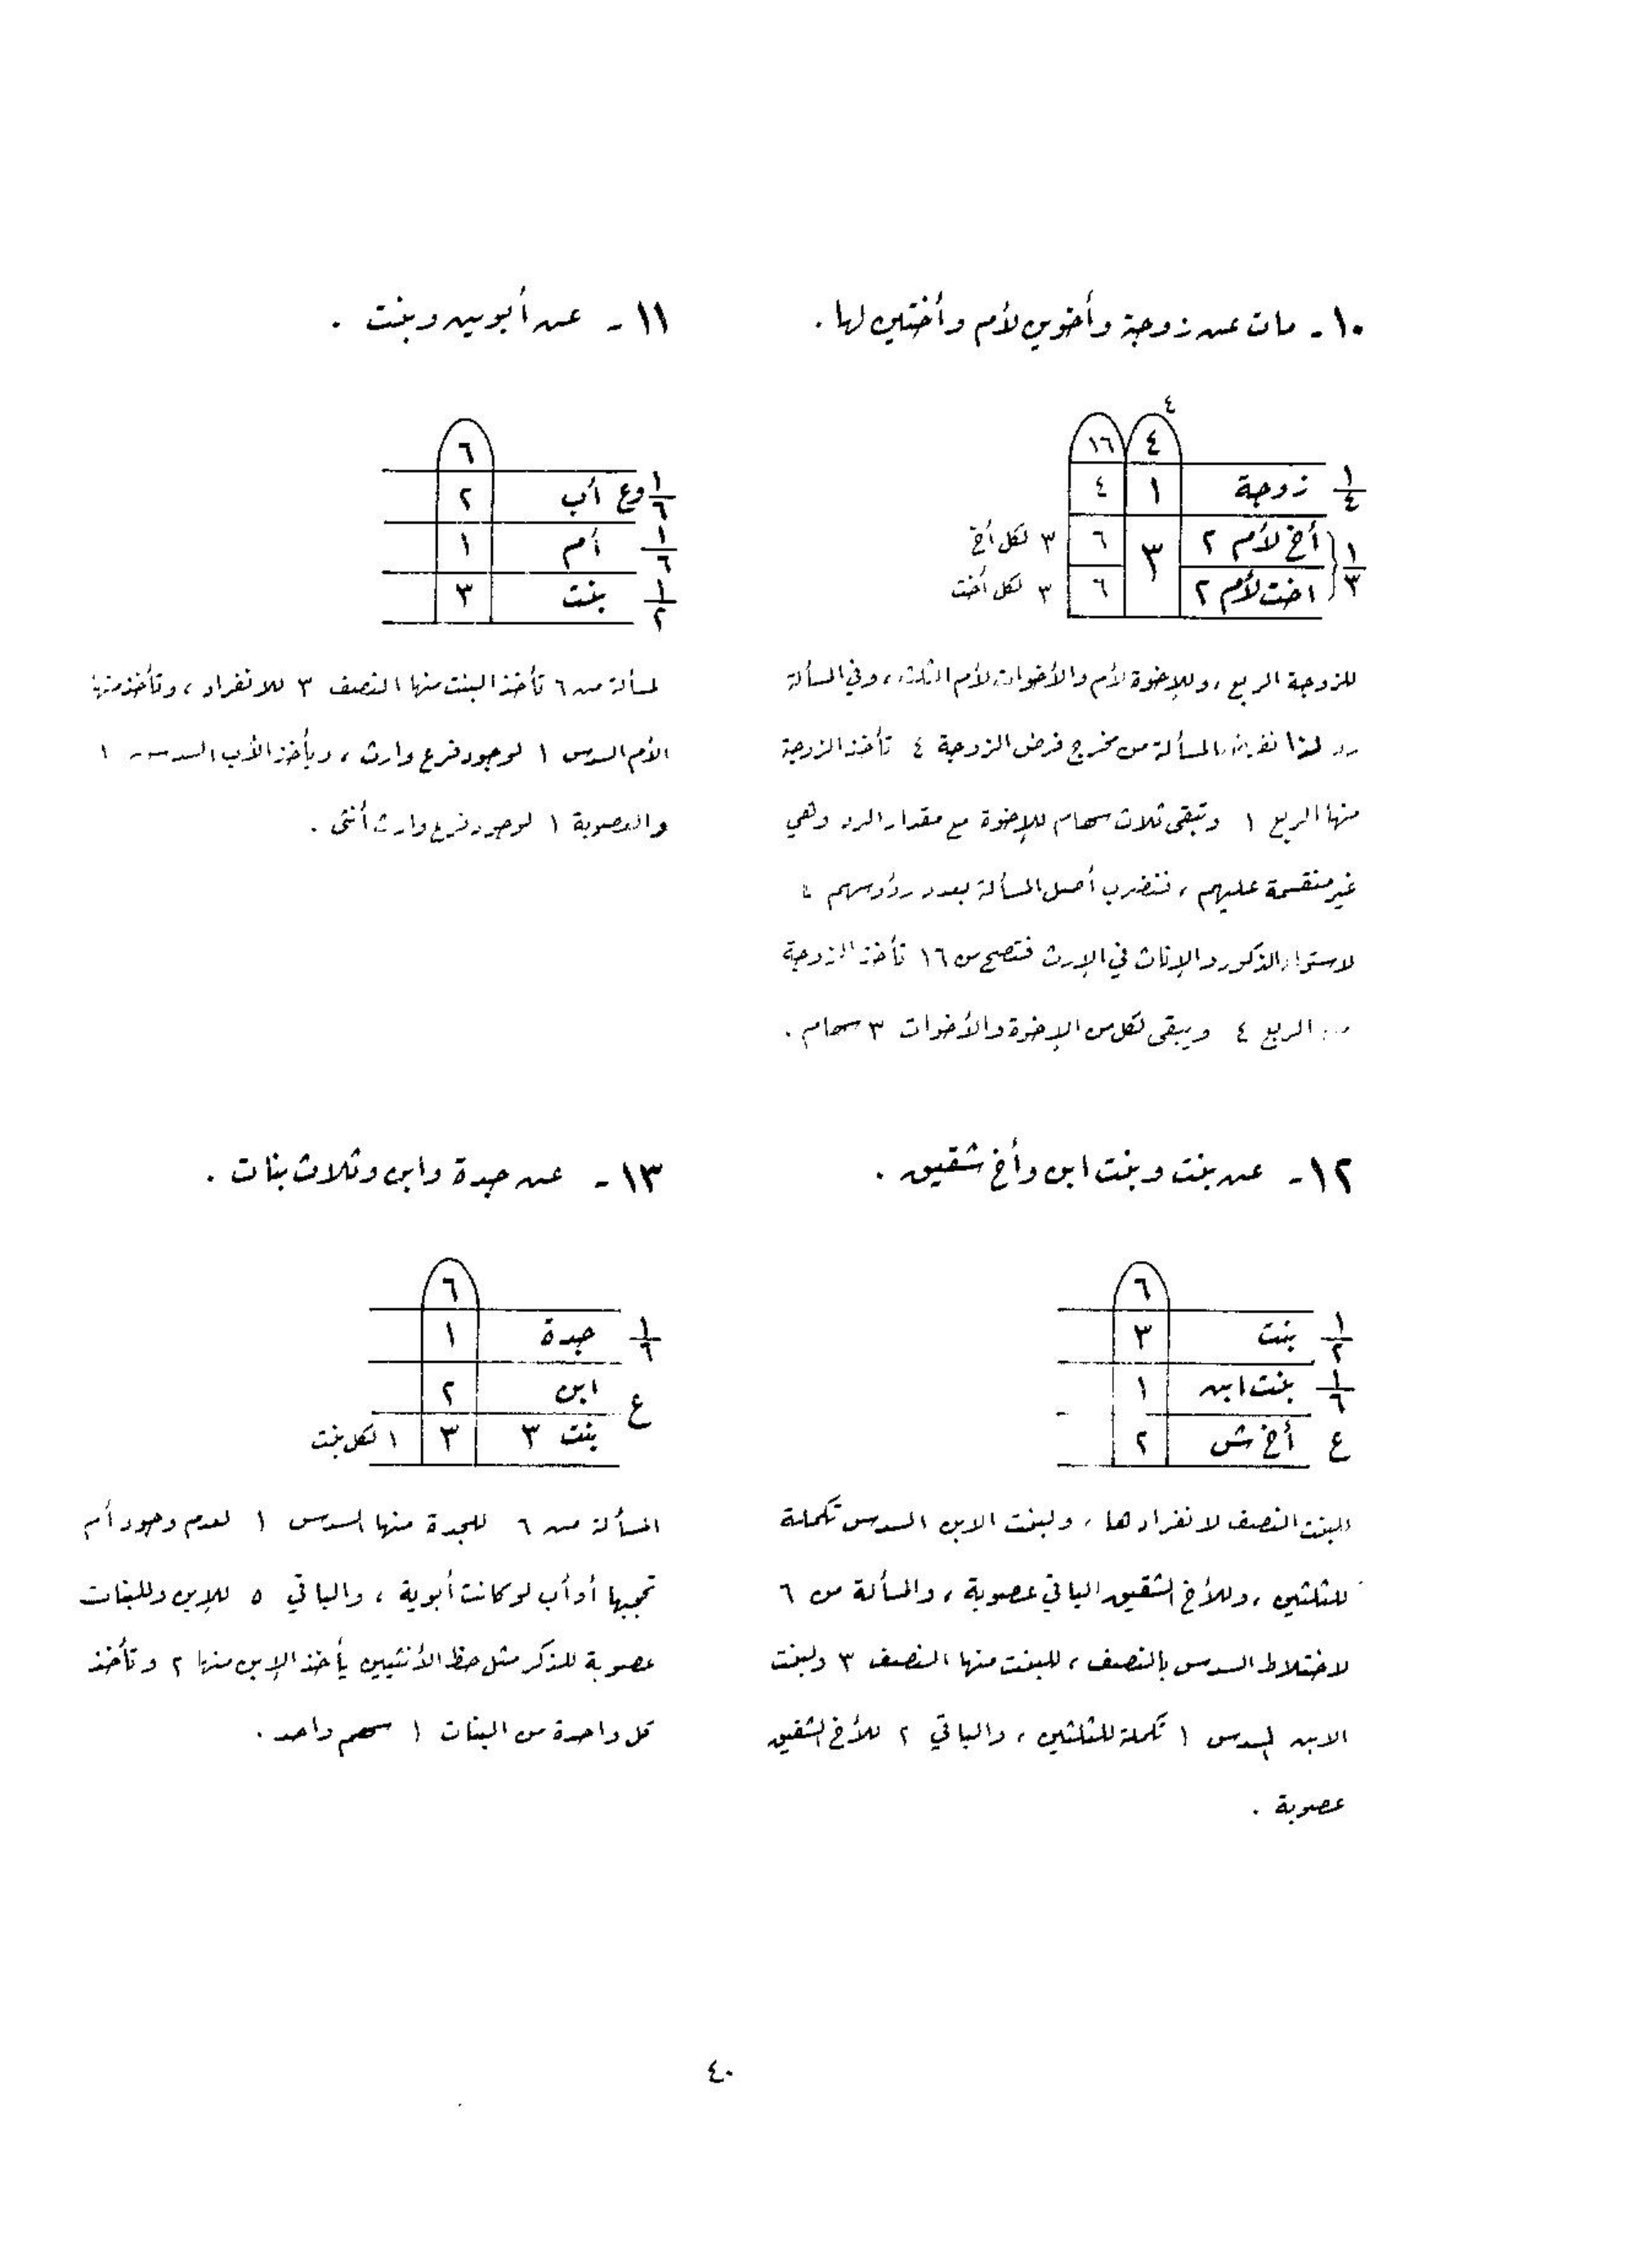 ١٠- مات عن زوجة وأخوين لأم وأختين لها .
٤
٤ ١٦
١/٤ زوجة ١ ٤
١/٣ أخ لأم ٢ ٣ ٦ ٣ لكل أخ
اخت لأم ٢ ٦ ٣ لكل أخت
للزوجة الربع ، وللإخوة لأم والأخوات لأم الثلث ، وفي المسألة
رد لذا المسألة من مخرج فرض الزوجة ٤ تأخذ الزوجة
منها الربع ١ وتبقى ثلاث سهام للإخوة مع مقدار الرد وهي
غير منقسمة عليهم ، فنضرب أصل المسألة بعدد رؤوسهم ٤
لاستواء الذكور والإناث في الإرث فتصح من ١٦ تأخذ الزوجة
الربع ٤ ويبقى لكل من الإخوة والأخوات ٣ سهام .
١١- عن أبوين وبنت .
٦
١/٦ وع أب ٢
١/٦ أم ١
١/٢ بنت ٣
المسألة من ٦ تأخذ البنت منها النصف ٣ للانفراد ، وتأخذ منها
الأم السدس ١ لوجود فرع وارث ، ويأخذ الأب السدس ١
والعصوبة ١ لوجود فرع وارث أنثى .
١٢- عن بنت وبنت ابن وأخ شقيق .
٦
١/٢ بنت ٣
١/٦ بنت ابن ١
ع أخ ش ٢
للبنت النصف لانفرادها ، ولبنت الابن السدس تكملة
للثلثين ، وللأخ الشقيق الباقي عصوبة ، والمسألة من ٦
لاختلاط السدس بالنصف ، للبنت منها النصف ٣ ولبنت
الابن السدس ١ تكملة للثلثين ، والباقي ٢ للأخ الشقيق
عصوبة .
١٣- عن جدة وابن وثلاث بنات .
٦
١/٦ جدة ١
ع ابن ٢
بنت ٣ ٣ ١ لكل بنت
المسألة من ٦ للجدة منها السدس ١ لعدم وجود أم
تحجبها أو أب لو كانت أبوية ، والباقي ٥ للإبن وللبنات
عصوبة للذكر مثل حظ الأنثيين يأخذ الإبن منها ٢ وتأخذ
كل واحدة من البنات ١ سهم واحد .
٤٠